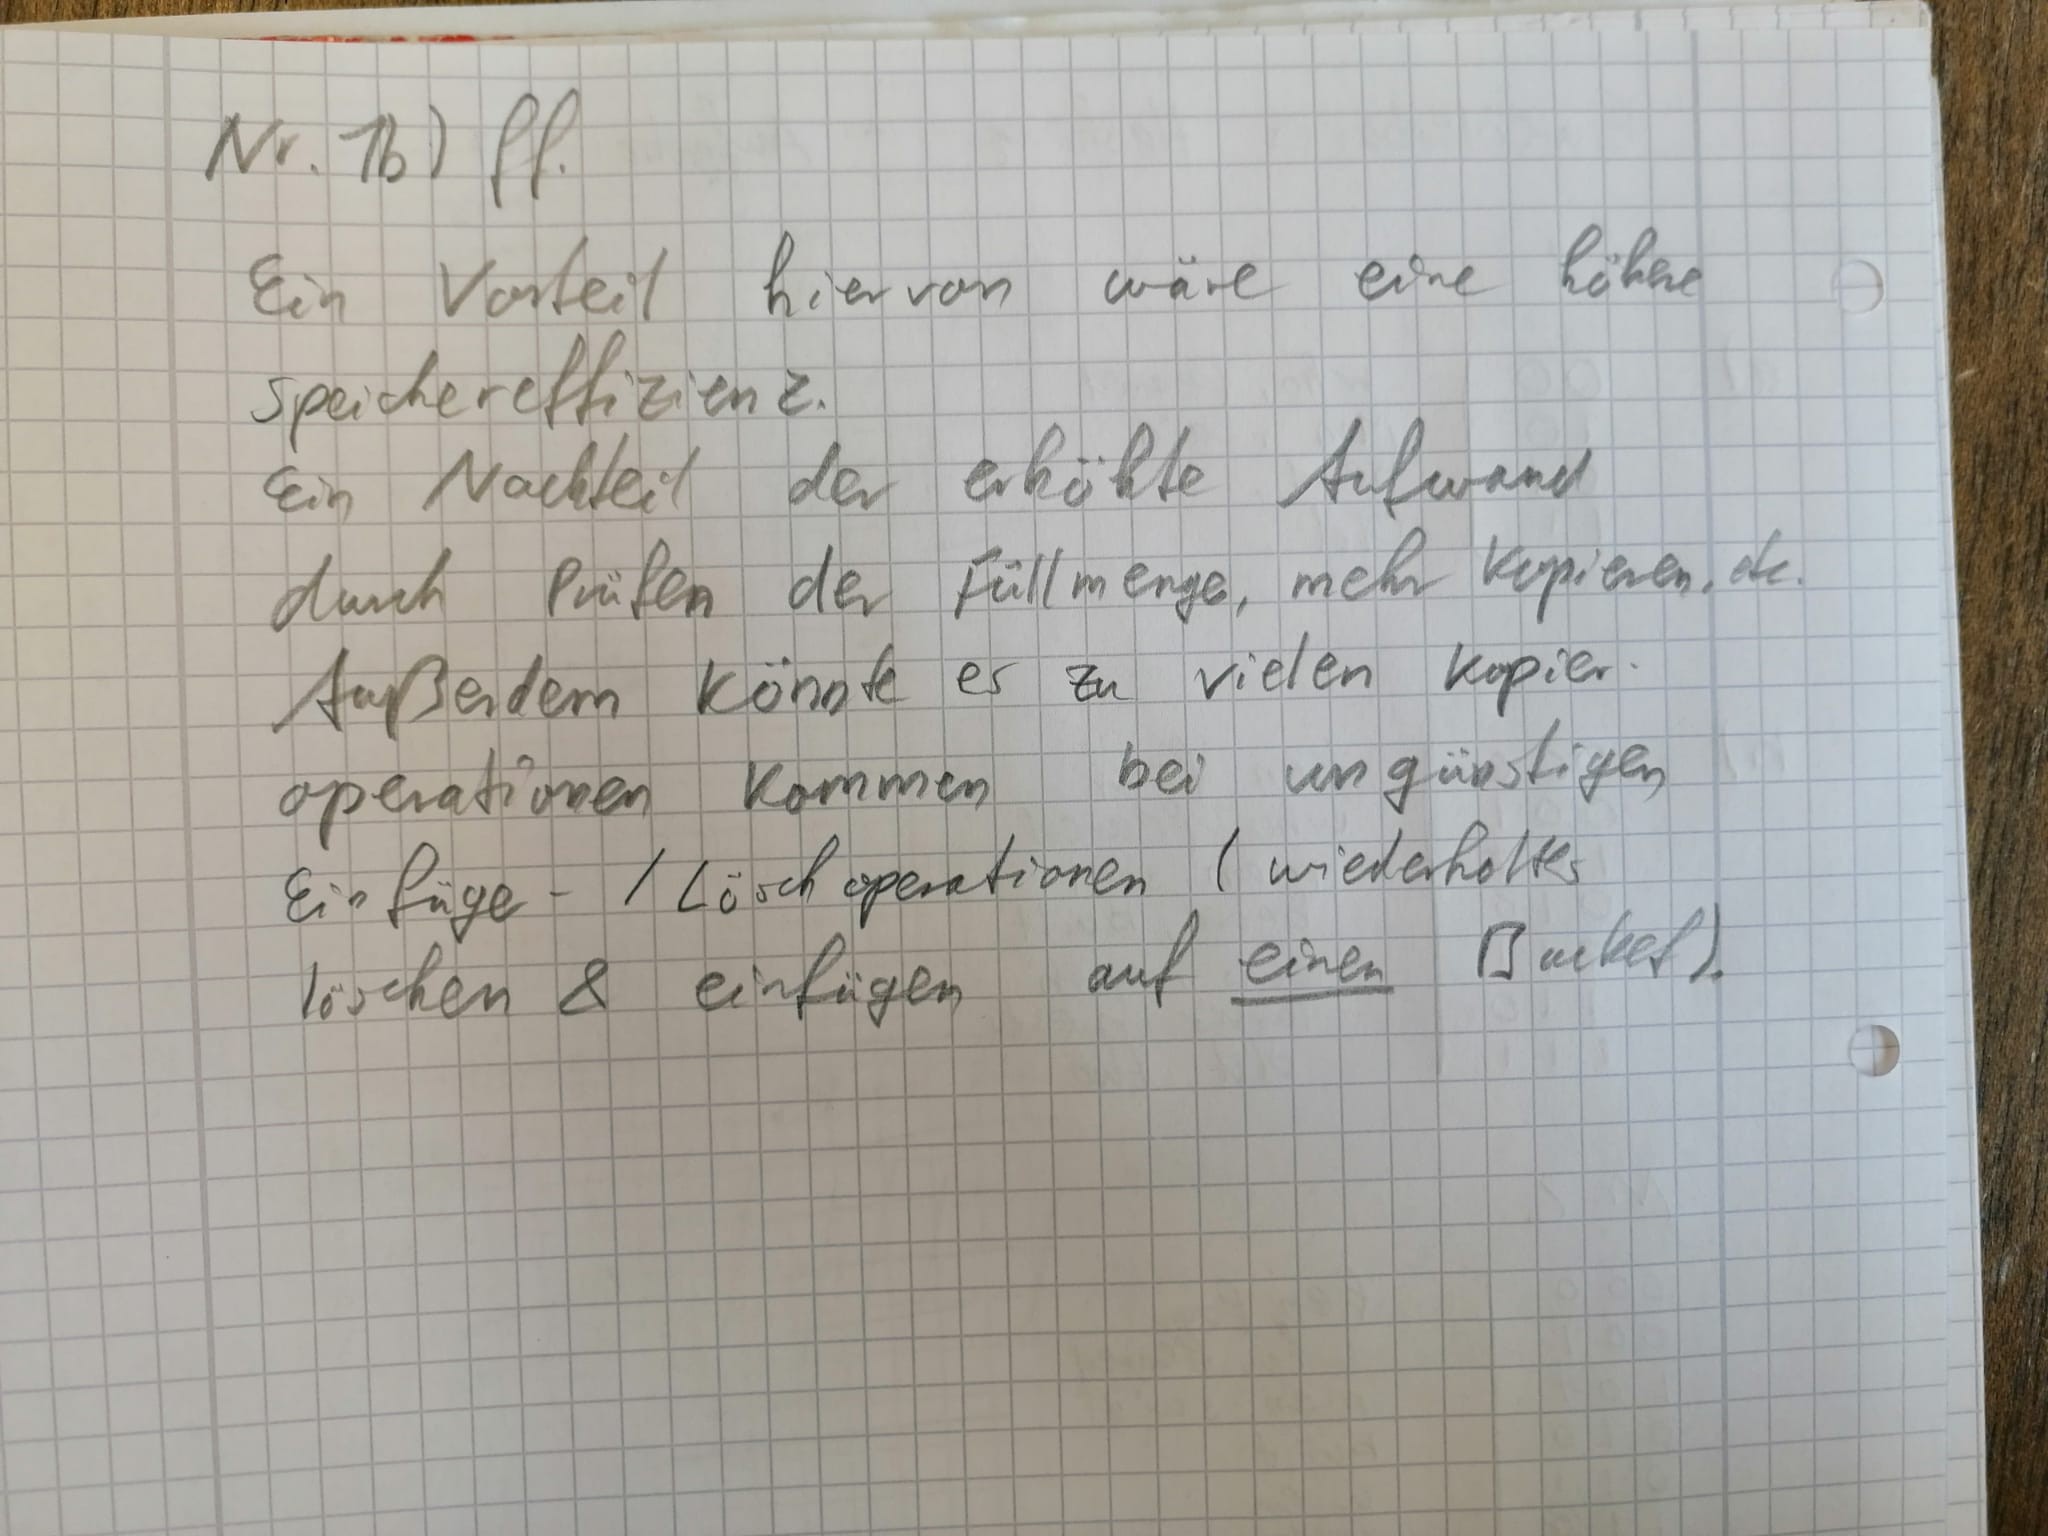 Nr. 1b) ff.
Ein Vorteil hiervon wäre eine höhere
speichereffizienz.
Ein Nachteil der erhöhte Aufwand
durch Prüfen der Füllmenge, mehr kopieren, etc.
Außerdem könnte es zu vielen kopier-
operationen kommen bei ungünstigen
Einfüge-/Löschoperationen (wiederholtes
löschen & einfügen auf einen Bucket).